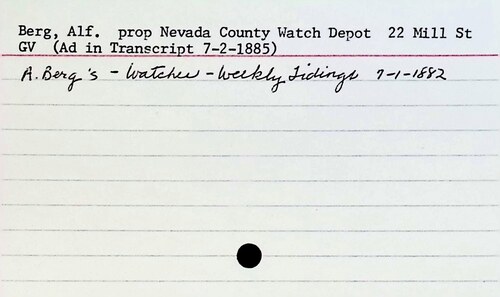 Berg, Alf. prop Nevada County Watch Depot 22 Mill St
GV (Ad in Transcript 7-2-1885)
A. Berg's - Watches - Weekly Tidings 7-1-1882